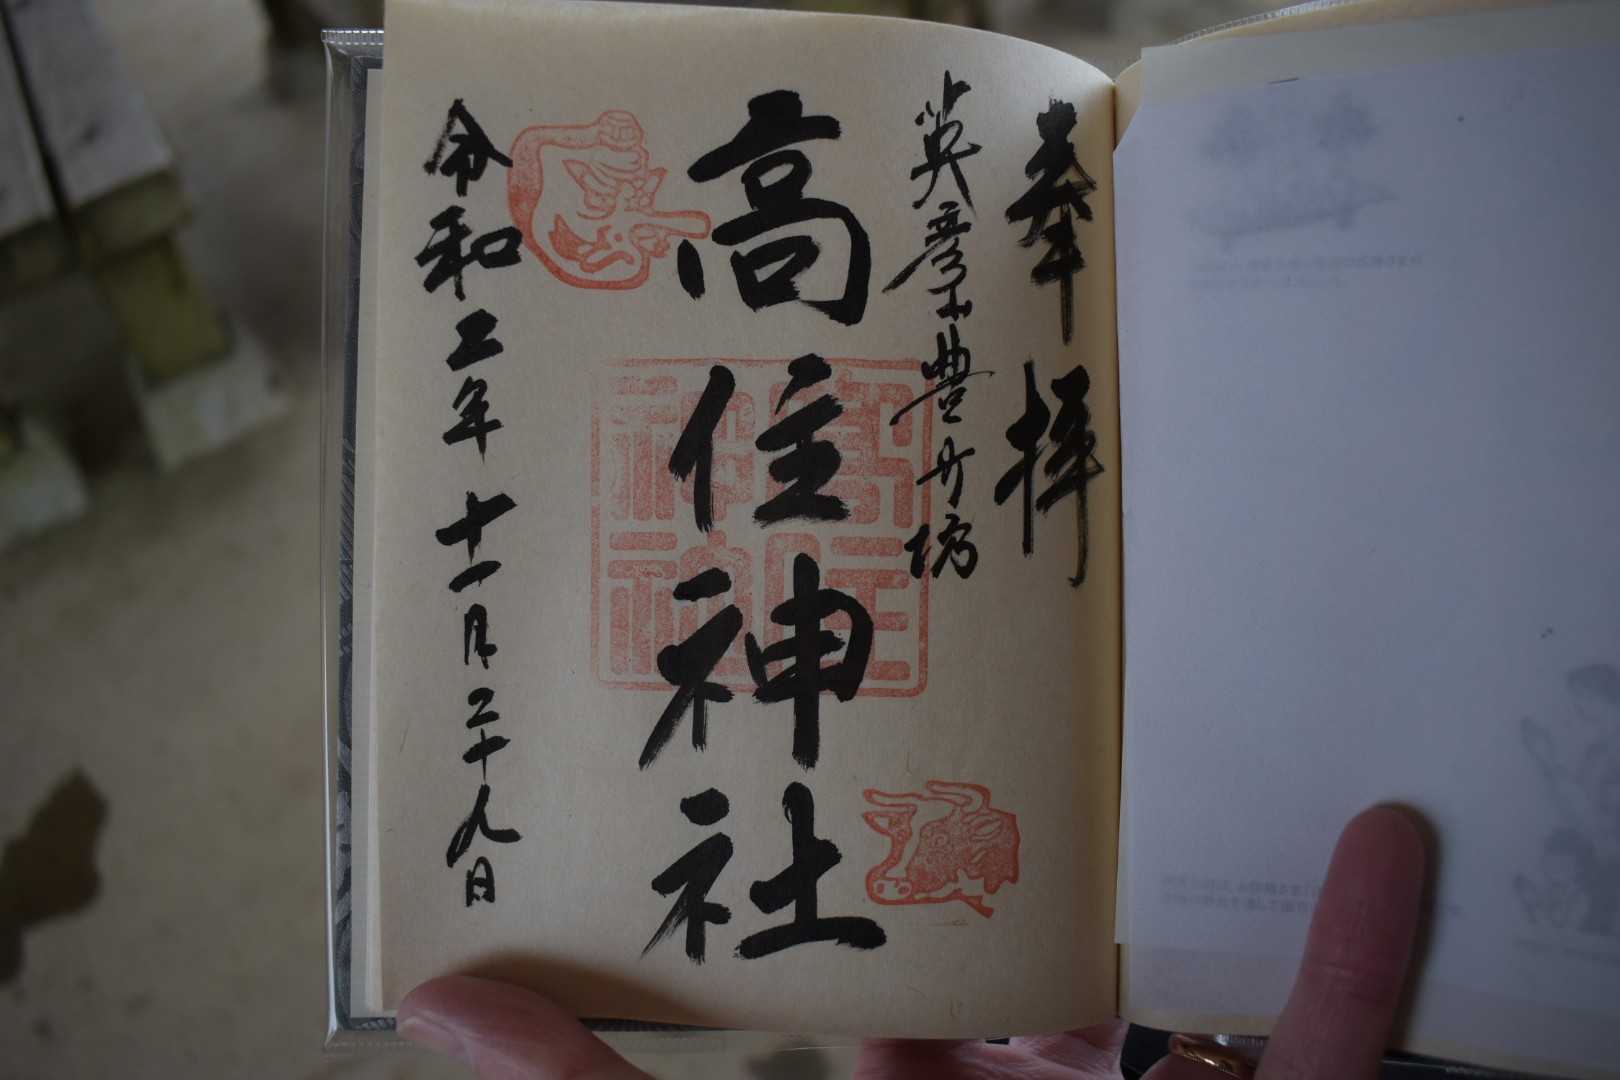 奉拝
英彦山豊前坊
高住神社
高住神社
令和二年十一月二十九日